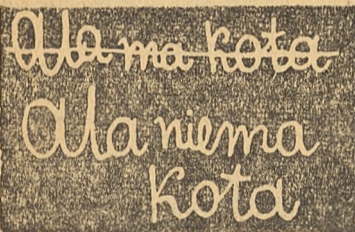 Ala ma kota
Ala niema
kota